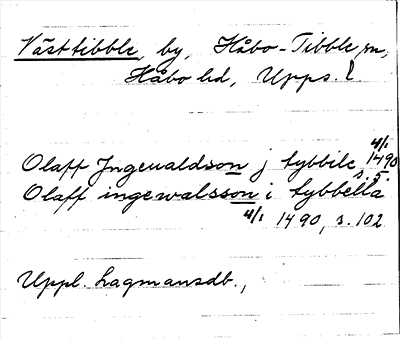 Västtibble, by, Håbo-Tibble sn,
Håbo hd, Upps. l
Olaff Jngeualdson j tybbile 4/1 1490 s. 5.
Olaff ingewalsson i tybbella
4/1 1490, s. 102
Uppl. Lagmansdb.,